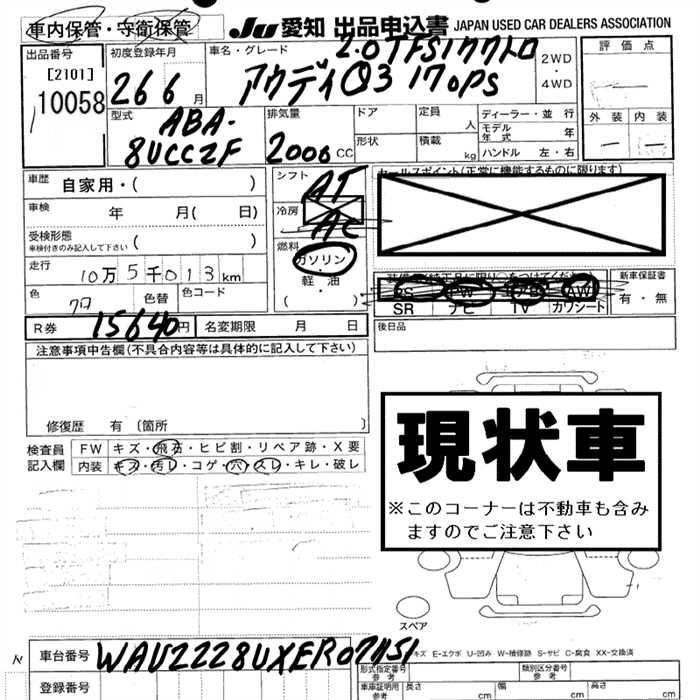 車内保管・守衛保管
JU 愛知 出品申込書 JAPAN USED CAR DEALERS ASSOCIATION
出品番号
[2101]
10058
初度登録年月
26 6 月
車名・グレード
2.0TFSIクワトロ
アウディQ3 170PS
2WD
・
4WD
評価点
外装
内装
型式
ABA-
8UCCZF
排気量
2000 CC
ドア
形状
定員
人
積載
kg
ディーラー・並行
モデル
年式
年
ハンドル 左・右
車歴 自家用・( )
車検 年 月( 日)
受検形態
車検付きのみ記入して下さい ( )
走行
10万5千013km
色 クロ 色替 色コード
R券 15640円 名変期限 月 日
シフト
AT
冷房
AC
燃料
ガソリン
・
軽・油
セールスポイント(正常に機能するものに限ります)
PS PW AW
SR ナビ TV カワシート
新車保証書
有・無
後日品
注意事項申告欄(不具合内容等は具体的に記入して下さい)
修復歴 有 〔箇所 〕
検査員
記入欄
FW キズ・飛石・ヒビ割・リペア跡・X要
内装 キズ・汚レ・コゲ・穴・スレ・キレ・破レ
現状車
※このコーナーは不動車も含み
ますのでご注意下さい
スペア
キズ E-エクボ U-凹み W-補修跡 S-サビ C-腐食 XX-交換済
車台番号
登録番号
形式指定番号
参考
類別区分番号
参考
車庫証明用
参考
長さ cm 幅 cm 高さ cm